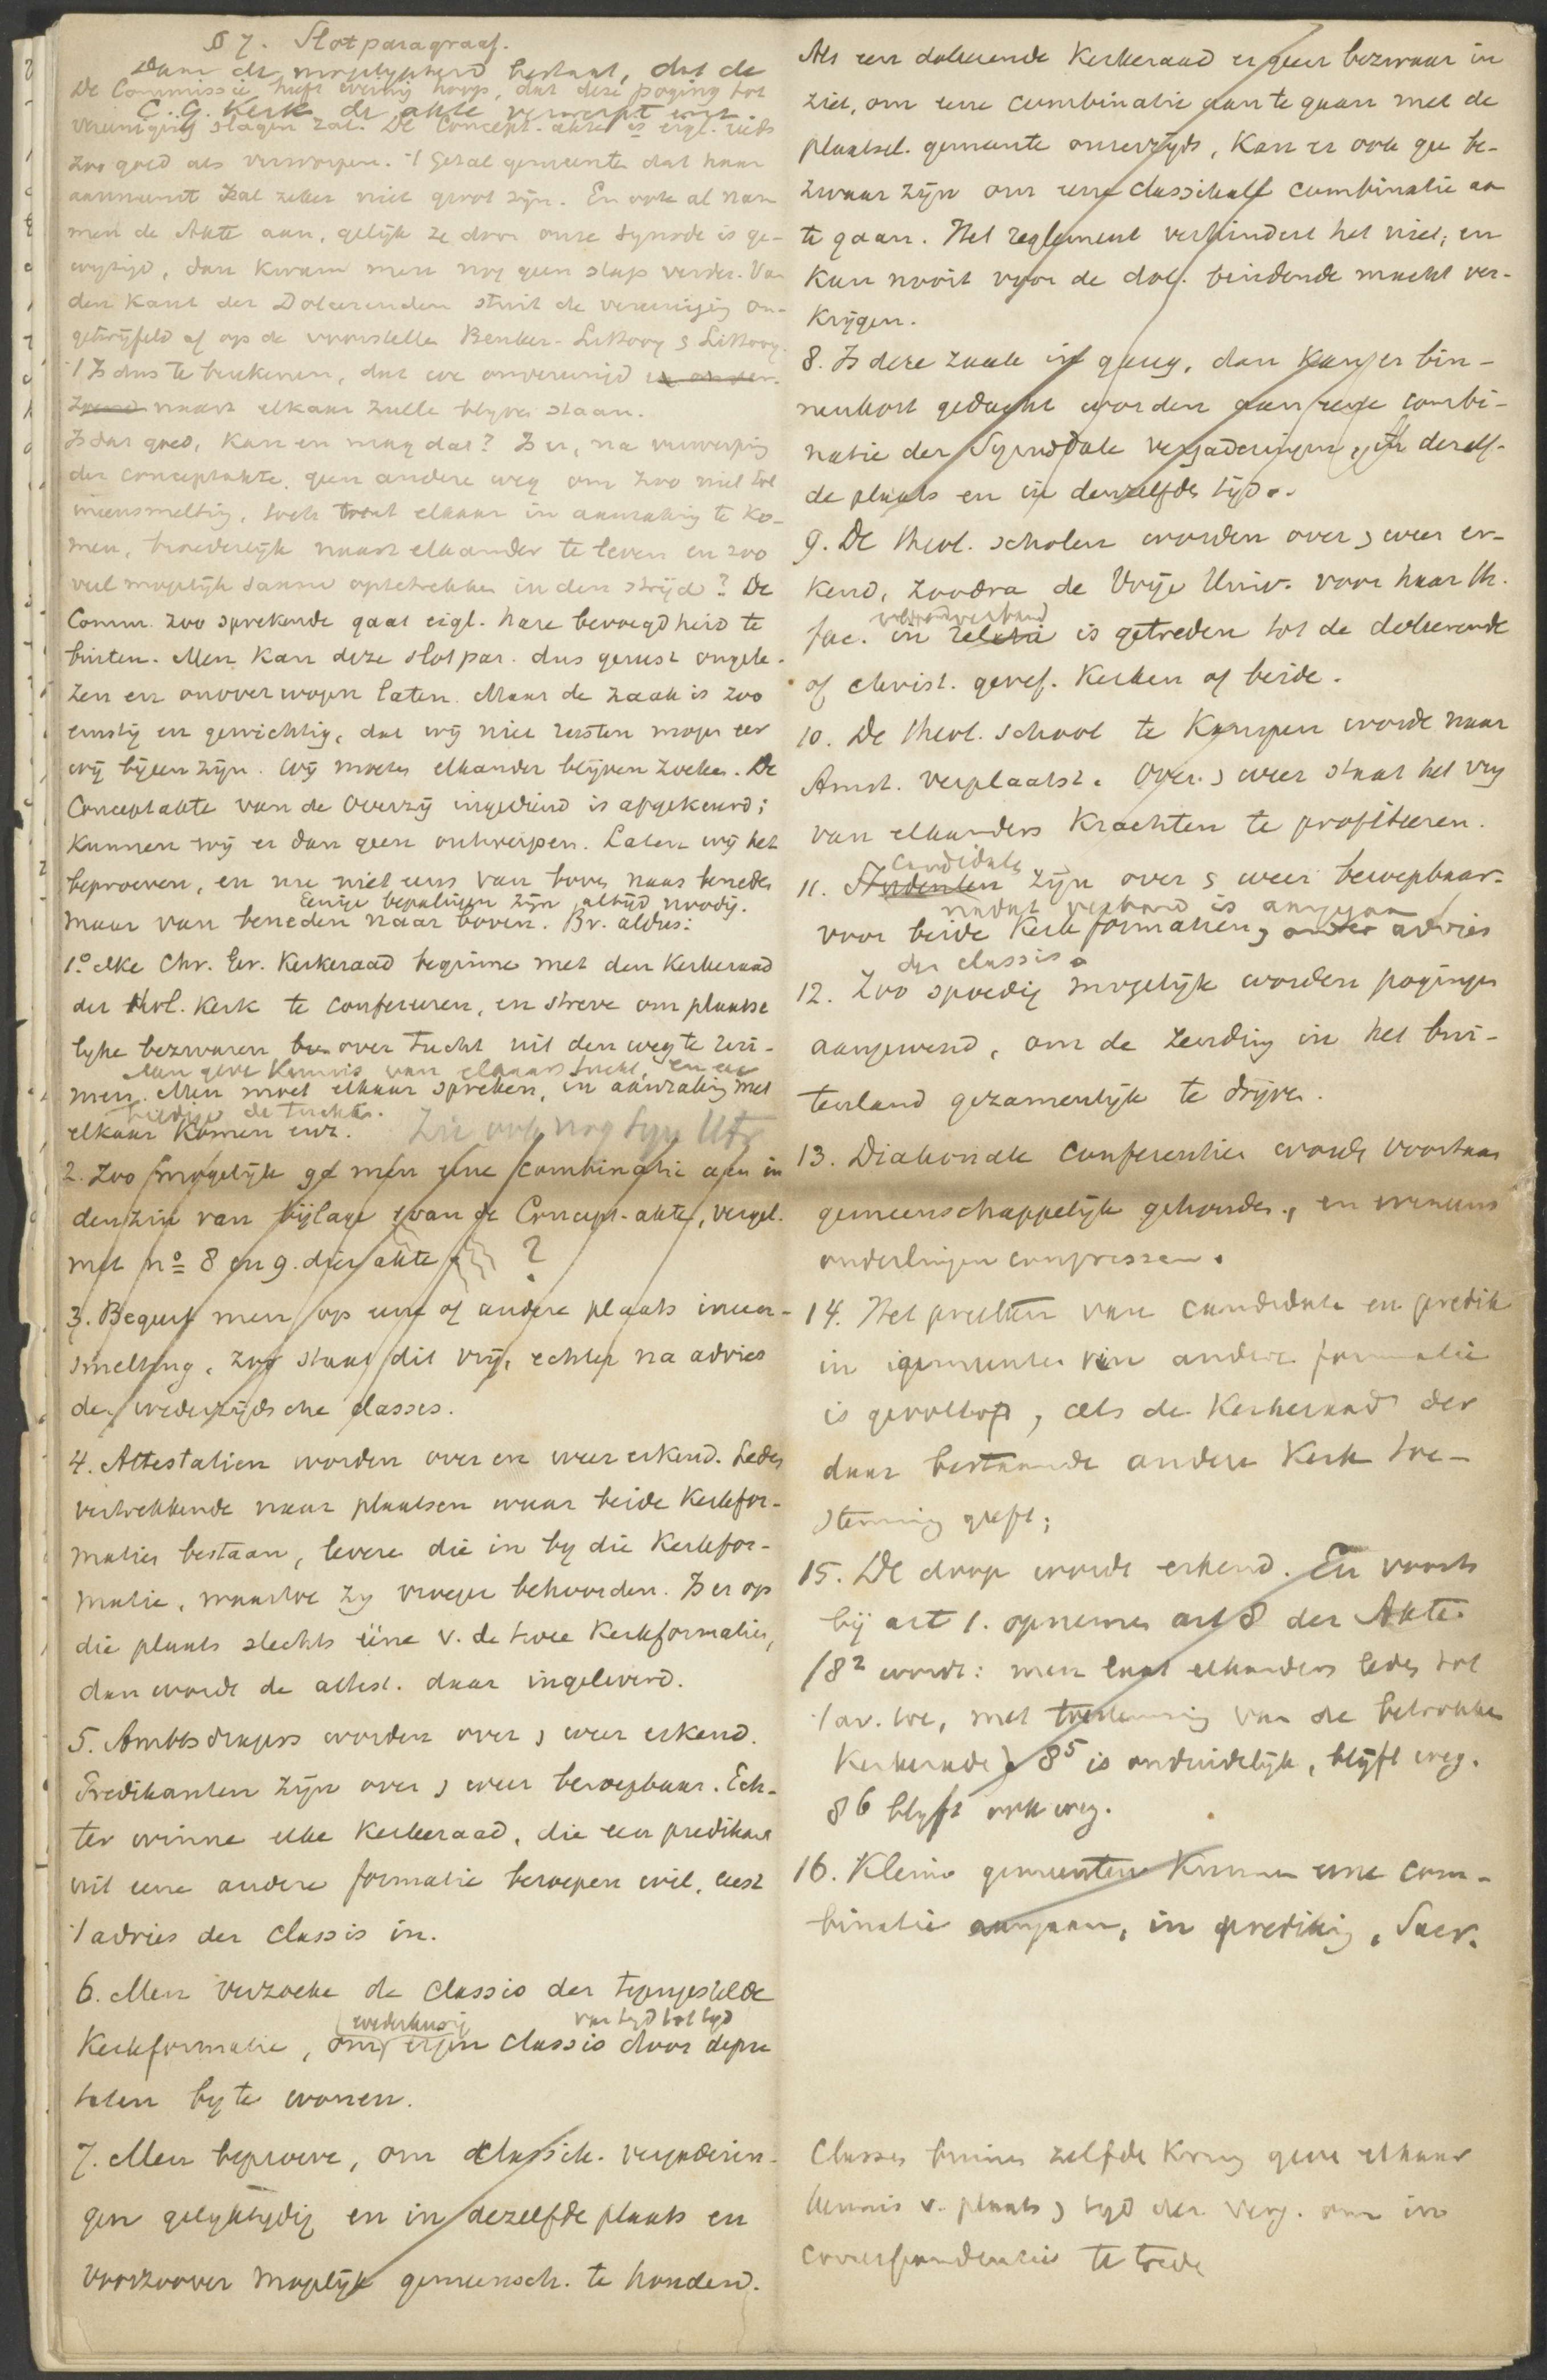 § 7. Slotparagraaf.
Daar de mogelijkheid bestaat, dat de
De Commissie heeft weinig hoop, dat deze poging tot
C. G. Kerk de akte verwerpt enz.
vereeniging slagen zal. De Concept-akte is eigl. reeds
zoo goed als verworpen. 't Getal gemeenten dat haar
aanneemt zal zeker niet groot zijn. En ook al nam
men de Akte aan, gelijk ze door onze Synode is ge-
wijzigd, dan kwam men nog geen stap verder. Van
den kant der Doleerenden stuit de vereeniging on-
getwijfeld af op de voorstellen
't Is dus te berekenen, dat we onvereenigd
naast elkaar zulle blijven staan.
Is dat goed, kan en mag dat? Is er, na verwerping
der conceptakte, geen andere weg om zoo niet tot
ineensmelting, toch met elkaar in aanraking te ko-
men, broederlijk naast elkander te leven en zoo
veel mogelijk samen optetrekken in den strijd? De
Comm. zoo sprekende gaat eigl. hare bevoegdheid te
buiten. Men kan deze slotpar. dus gerust ongele-
zen en onoverwogen laten. Maar de zaak is zoo
ernstig en gewichtig, dat wij niet rusten mogen eer
wij bijeen zijn. Wij moeten elkander blijven zoeken. De
Conceptakte van de Overzij ingediend is afgekeurd;
kunnen wij er dan geen ontwerpen. Laten wij het
beproeven, en nu niet eens van boven naar beneden
Eenige bepalingen zijn altijd noodig.
maar van beneden naar boven. Bv. aldus:
1.° elke Chr. Ger. Kerkeraad beginne met den Kerkeraad
der dol. Kerk te confereeren, en streve om plaatse
lijke bezwaren bv. over tucht uit den weg te rui-
Men geve kennis van elkaars tucht, en eer
men. Men moet elkaar spreken, in aanraking met
biedige de tuchten.
elkaar komen enz. Zie ook nog Syn Utr
2. Zoo mogelijk ga men eene combinatie aan in
den zin van bijlage van de Concept-akte, vergel.
met no 8 en 9. dier akte ?
3. Begeert men op eene of andere plaats ineen-
smelting, zoo staat dit vrij, echter na advies
der wederzijdsche classes.
4. Attestatien worden over en weer erkend. Leden
vertrekkende naar plaatsen waar beide Kerkfor-
maties bestaan, levere die in by die Kerkfor-
matie, waartoe zy vroeger behoorden. Is er op
die plaats slechts ééne v. de twee Kerkformaties,
dan worde de attest. daar ingeleverd.
5. Ambtsdragers worden over & weer erkend.
Predikanten zijn over & weer beroepbaar. Ech-
ter winne elke Kerkeraad, die een predikant
uit eene andere formatie beroepen wil, eerst
't advies der Classis in.
6. Men verzoeke de Classis der tegengestelde
wederkeerig van tijd tot tijd
Kerkformatie, om eigen Classis door depu
taten by te wonen.
7. Men beproeve, om classik. vergaderin-
gen gelyktydig en in dezelfde plaats en
voorzoover mogelijk gemeensch. te houden.
Als een doleerende Kerkeraad er geen bezwaar in
ziet, om eene combinatie aan te gaan met de
plaatsel. gemeente onzerzijds, kan er ook gee be-
zwaar zijn om eene classikale combinatie aan
te gaan. Het reglement verhindert het niet, en
kan nooit voor de dol. bindende macht ver-
krijgen.
8. Is deze zaak in gang, dan kan er bin-
nenkort gedacht worden aan eene combi-
natie der Synodale vergaderingen, in dezelf-
de plaats en in denzelfde tijd.
9. De theol. scholen worden over & weer er-
kend, zoodra de Vrije Univ. voor haar th.
verband
fac. in relatie is getreden tot de doleerende
of christ. geref. Kerken of beide.
10. De theol. school te Kampen worde naar
Amst. verplaatst. Over & weer staat het vrij
van elkanders krachten te profiteeren.
Candidaten
11. Studenten zijn over & weer beroepbaar
nadat verband is aangegaan
voor beide Kerkformatien, onder advies
der classis.
12. Zoo spoedig mogelijk worden pogingen
aangewend, om de Zending in het bui-
tenland gezamenlijk te drijven.
13. Diakonale conferentien worde voortaan
gemeenschappelijk gehouden, en eveneens
onderlinge congressen.
14. Het preeken van candidate en predik
in gemeenten van andere formatie
is geoorloofd, als de Kerkeraad der
daar bestaande andere Kerk toe-
stemming geeft;
15. De doop worde erkend. En voorts
bij art 1. opnemen art 8 der Akte.
/8² wordt: men laat elkanders leden tot
't av. toe, met toestemming van de betrokken
Kerkeraden. 8⁵ is onduidelijk, blijft weg.
8⁶ blijft ook weg.
16. Kleine gemeenten kunnen eene com-
binatie aangaan, in prediking, Sacr.
Classes binnen zelfde kring geve elkaar
kennis v. plaats & tijd der verg. om in
correspondentie te trede